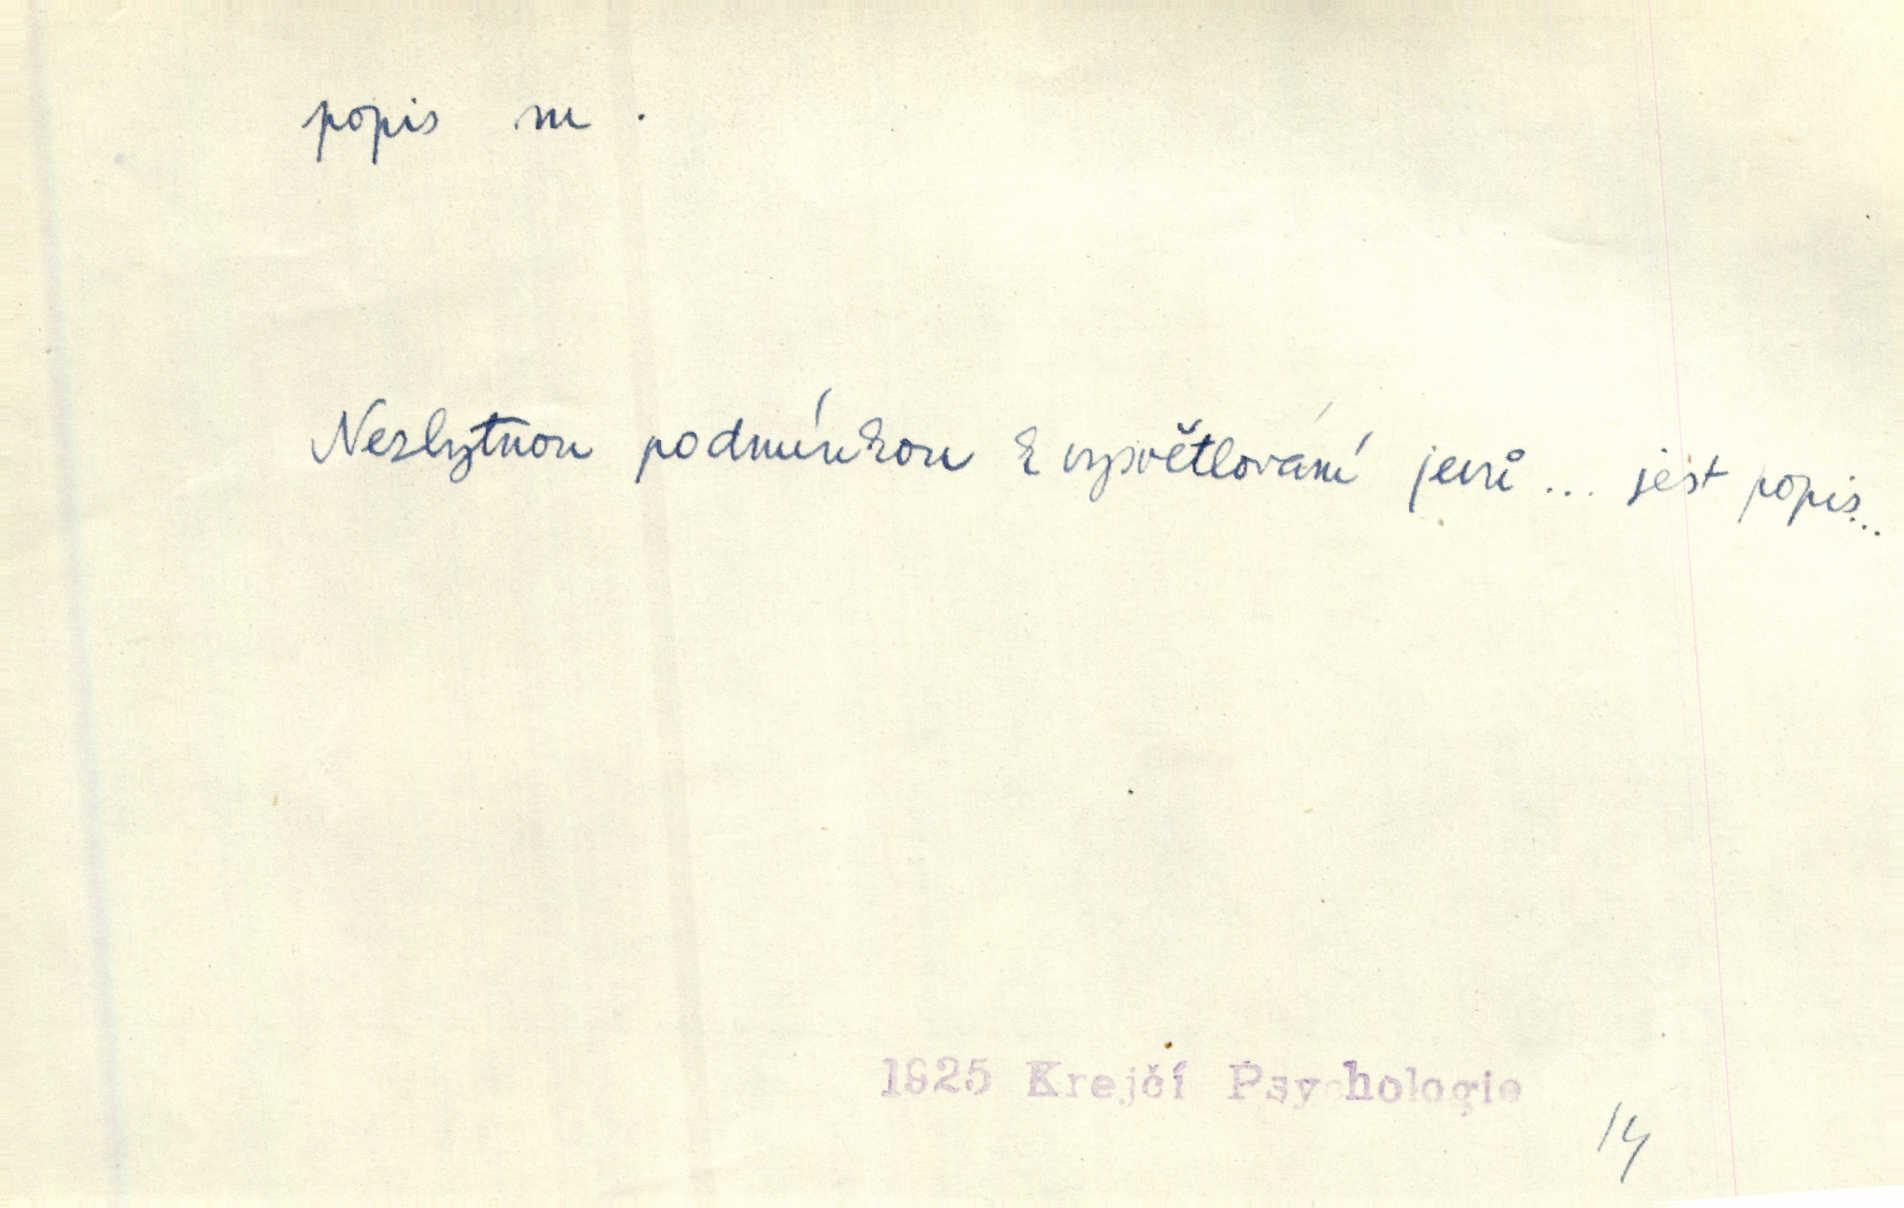 popis m.
Nezbytnou podmínkou k vysvětlování jevů ... jest popis...
1925 Krejčí Psychologie
14